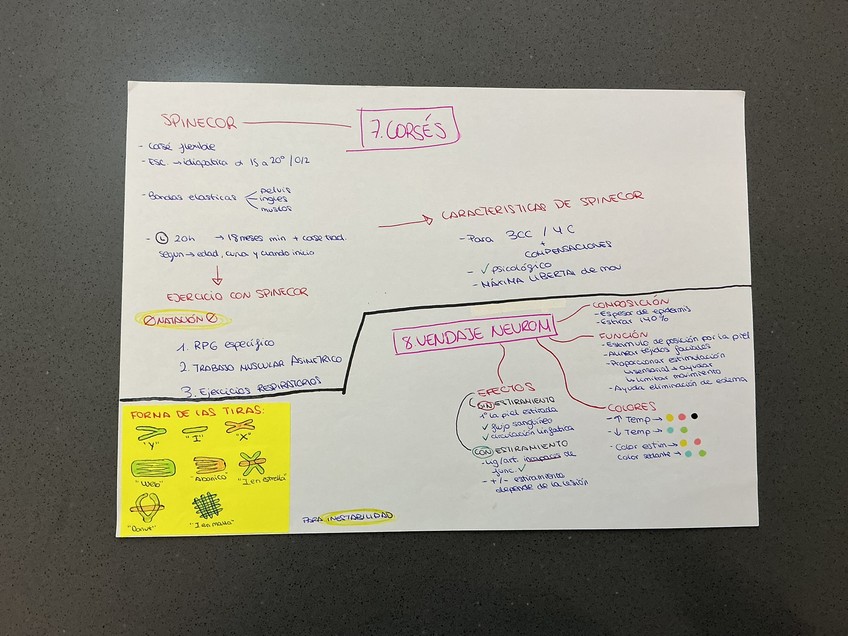 7. CORSÉS
SPINECOR
- Corsé flexible
- Esc. → idiopática α 15 a 20° / 0/2
- Bandas elasticas
pelvis
ingles
muslos
- 20h → 18 meses min + corse trad.
segun → edad, curva y cuando inicio
EJERCICIO CON SPINECOR
NATACIÓN
1. RPG específico
2. TRABAJO MUSCULAR ASIMETRICO
3. Ejercicios RESPIRATORIOS
CARACTERISTICAS DE SPINECOR
- Para 3CC / 4C
+
COMPENSACIONES
- ✓ psicológico
- MÁXIMA LIBERTA de mov
8. VENDAJE NEUROM
COMPOSICIÓN
- Espesor de epidermis
- Estirar 140%
FUNCIÓN
- Estimulo de posición por la piel
- Alinear tejidos faciales
- Proporcionar estimulación
↳ sensorial → ayudar
↳ limitar movimiento
- Ayuda eliminación de edema
COLORES
- ↑ Temp →
- ↓ Temp →
- Color estim →
Color sedante →
EFECTOS
SIN ESTIRAMIENTO
la piel estirada
✓ flujo sanguíneo
✓ circulación linfatica
CON ESTIRAMIENTO
- lig/art. incapaces de
func. ✓
- +/- estiramiento
depende de la lesión
FORMA DE LAS TIRAS:
"Y" "I" "X"
"Web" "Abanico" "I en estrella"
"Donut" "I en malla"
PARA INESTABILIDAD